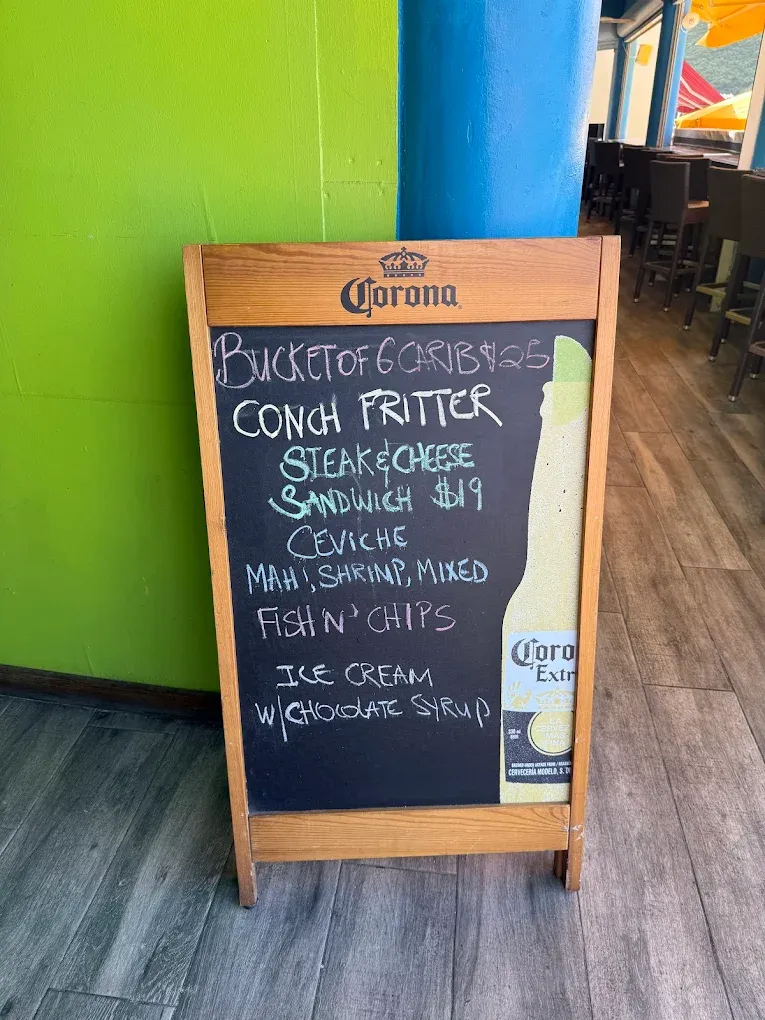 Corona
BUCKET OF 6 CARIB $25
CONCH FRITTER
STEAK & CHEESE
SANDWICH $19
CEVICHE
MAHI, SHRIMP, MIXED
FISH 'N' CHIPS
ICE CREAM
W/CHOCOLATE SYRUP
Coro
Extr
LA
CERVEZA
MAS
FINA
CERVECERÍA MODELO, S. DE